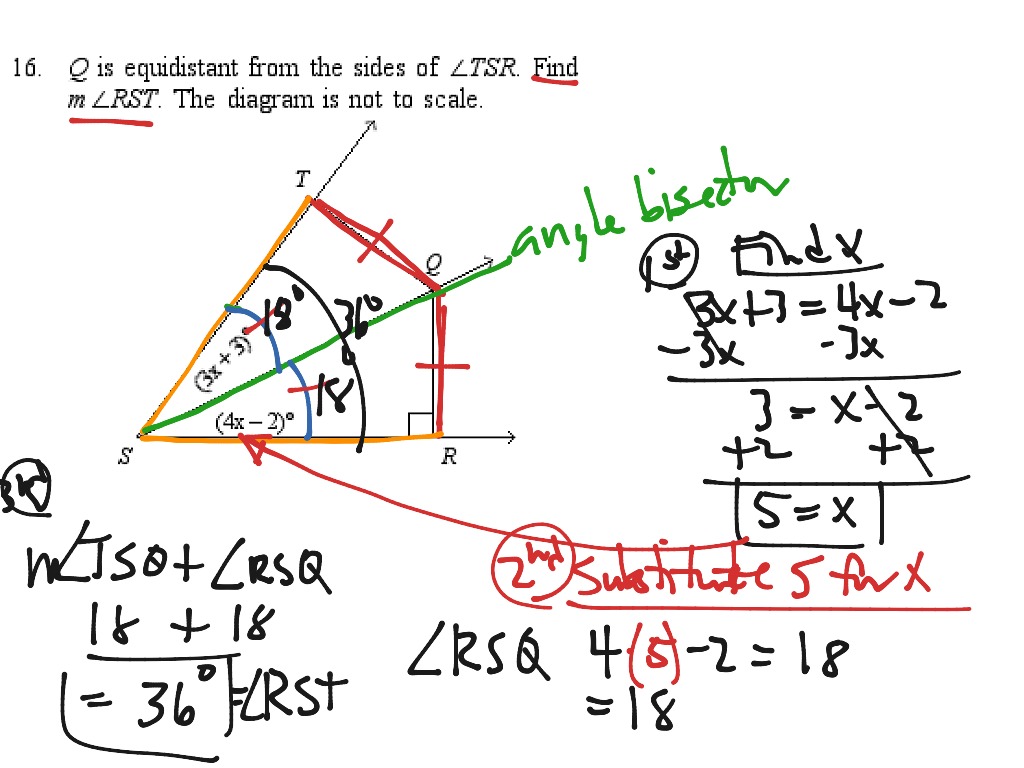 16. Q is equidistant from the sides of ∠TSR. Find
m∠RST. The diagram is not to scale.
T
angle bisector
Q
18°
36°
(3x + 3)°
18
(4x – 2)°
S
R
1st Find x
3x+3 = 4x-2
-3x -3x
3 = x-2
+2 +2
5 = x
2nd Substitute 5 for x
∠RSQ 4(5)-2 = 18
= 18
3rd
m∠TSQ + ∠RSQ
18 + 18
= 36° = ∠RST